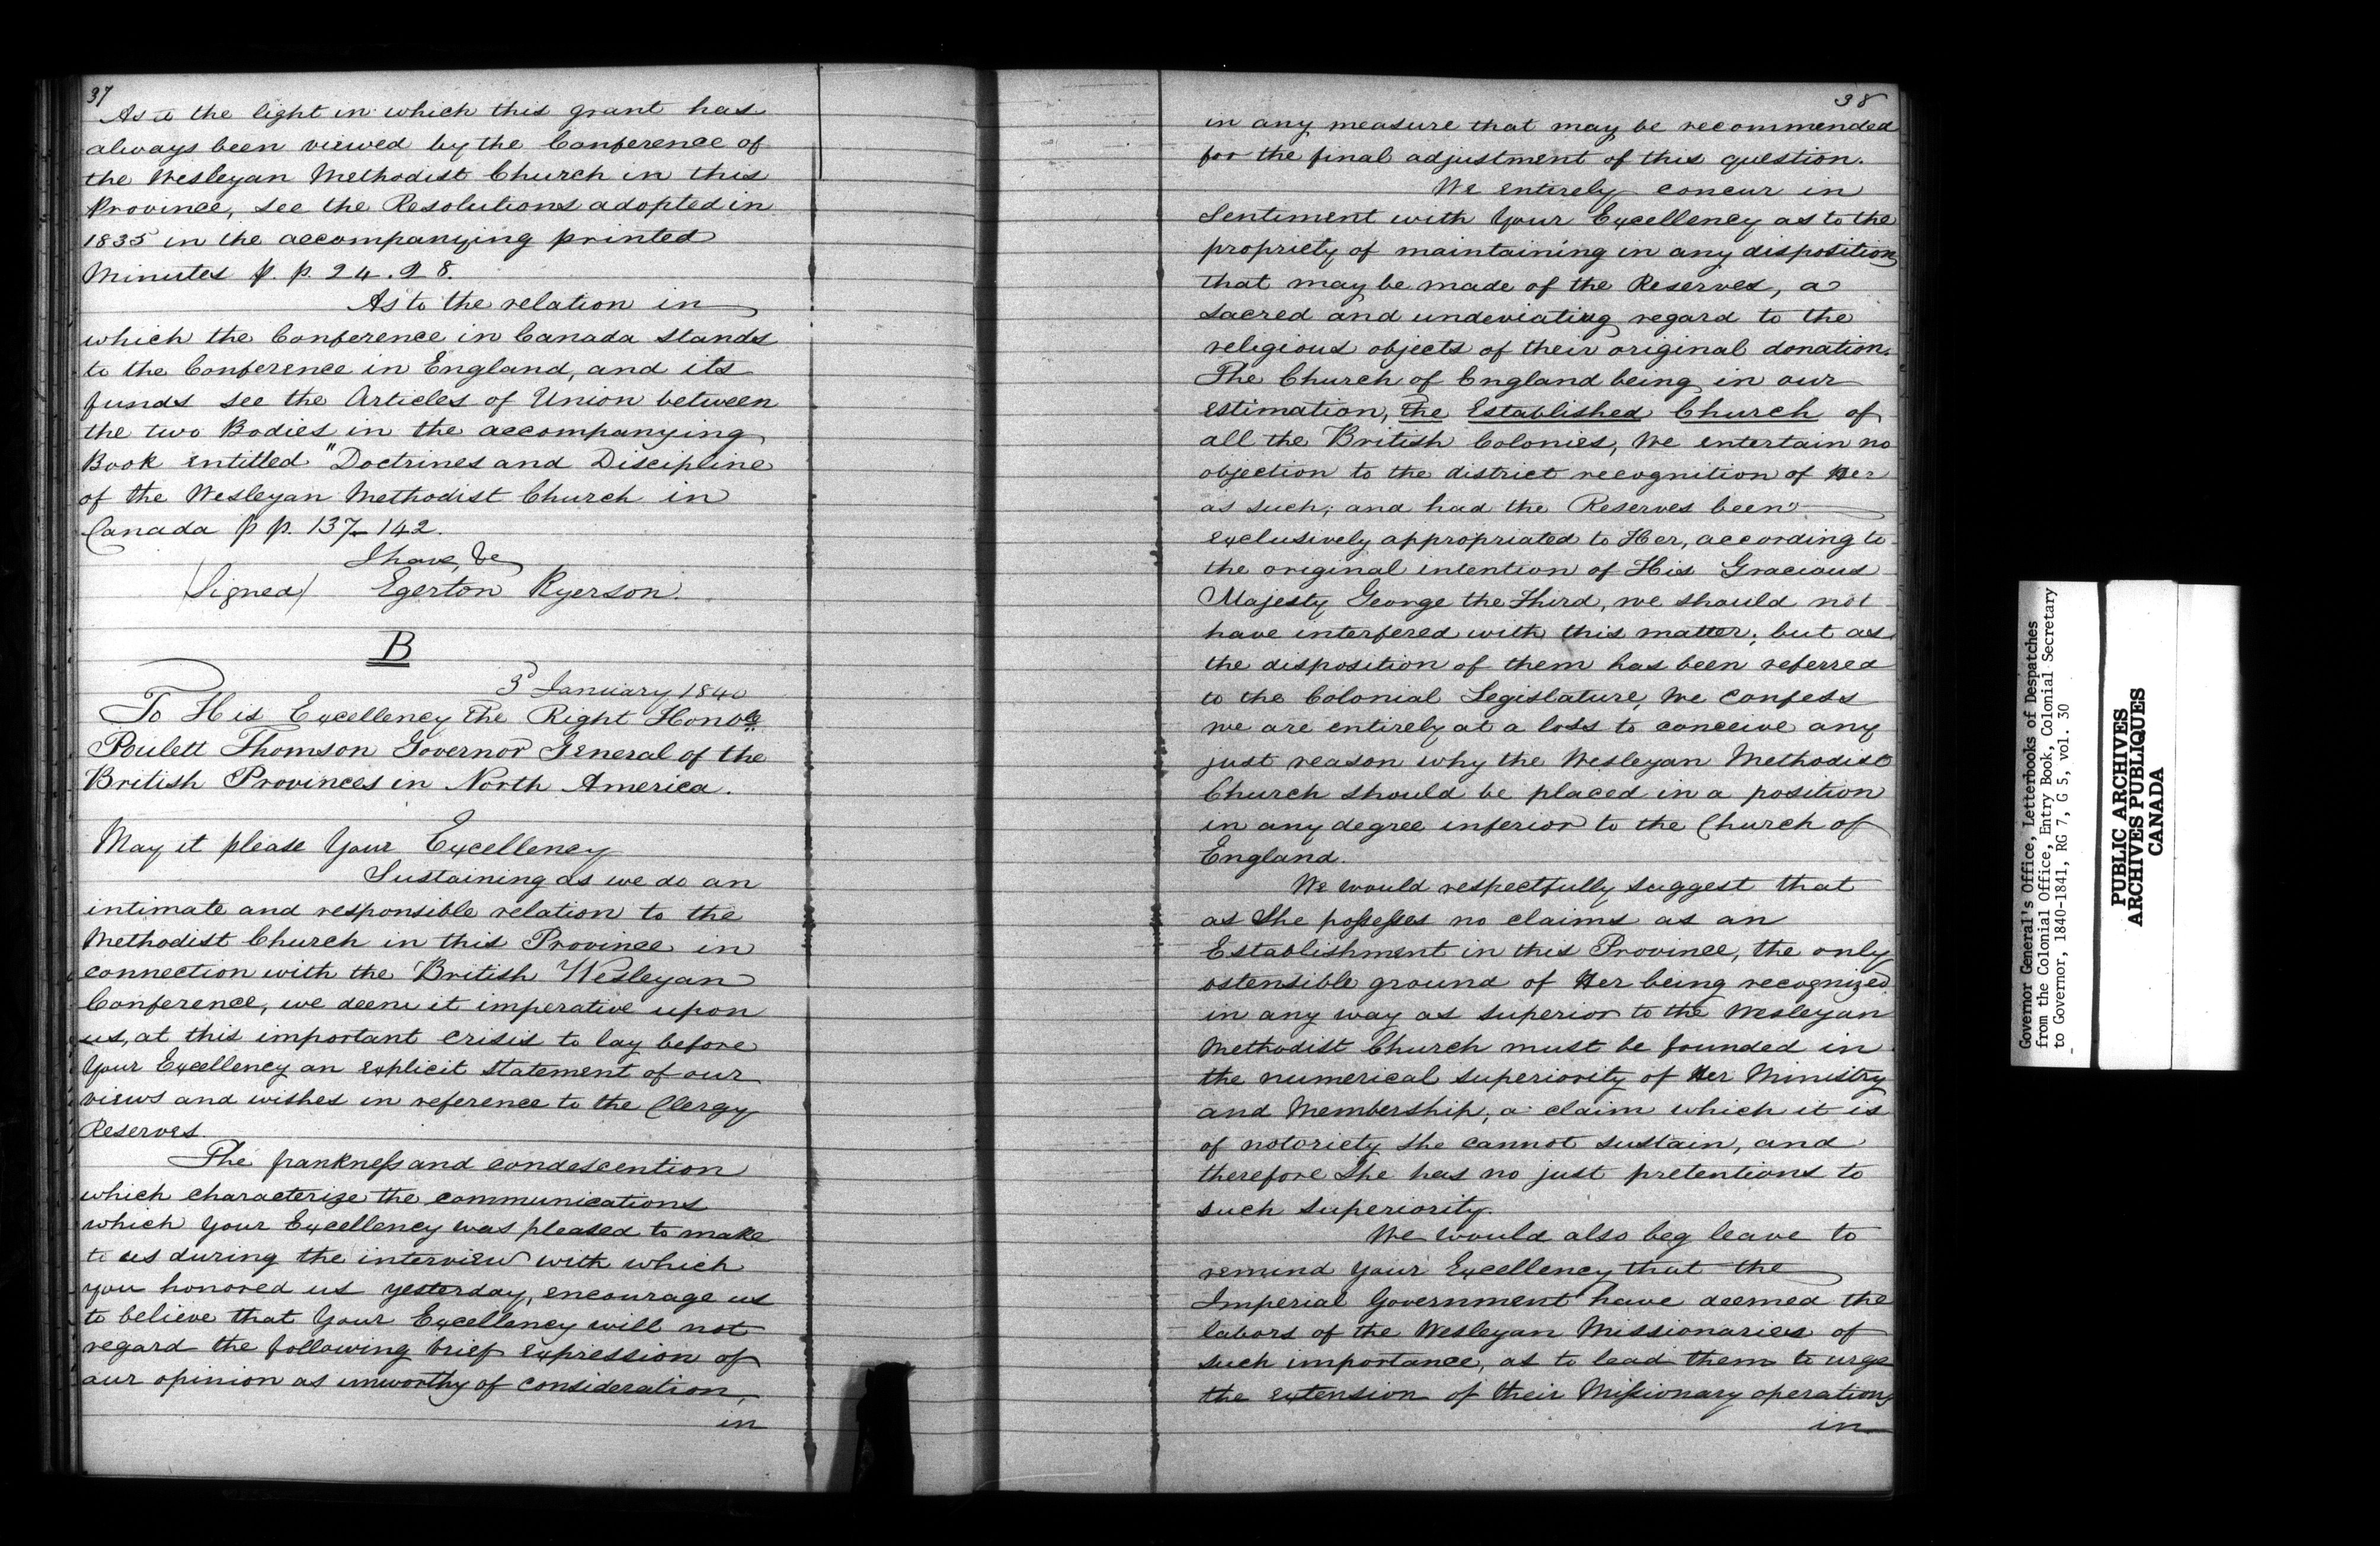 37
As to the light in which this grant has
always been viewed by the Conference of
the Wesleyan Methodist Church in this
Province, see the Resolutions adopted in
1835 in the accompanying printed
Minutes p. p. 24. 28.
As to the relation in
which the Conference in Canada stands
to the Conference in England, and its
funds see the Articles of Union between
the two Bodies in the accompanying
Book entitled "Doctrines and Discipline
of the Wesleyan Methodist Church in
Canada p p. 137-142.
I have, &c
(Signed) Egerton Ryerson.
B
3d January 1840
To His Excellency The Right Honble
Poulett Thomson Governor General of the
British Provinces in North America.
May it please Your Excellency
Sustaining as we do an
intimate and responsible relation to the
Methodist Church in this Province in
connection with the British Wesleyan
Conference, we deem it imperative upon
us, at this important crisis to lay before
Your Excellency an explicit statement of our
views and wishes in reference to the Clergy
Reserves.
The frankness and condescention
which characterize the communications
which Your Excellency was pleased to make
to us during the interview with which
you honored us yesterday, encourage us
to believe that Your Excellency will not
regard the following brief expression of
our opinion as unworthy of consideration,
in
38
in any measure that may be recommended
for the final adjustment of this question.
We entirely concur in
Sentiment with Your Excellency as to the
propriety of maintaining in any disposition
that may be made of the Reserves, a
sacred and undeviating regard to the
religious objects of their original donation.
The Church of England being in our
estimation, The Established Church of
all the British Colonies, We entertain no
objection to the district recognition of Her
as such; and had the Reserves been
exclusively appropriated to Her, according to
the original intention of His Gracious
Majesty George the Third, we should not
have interfered with this matter; but as
the disposition of them has been referred
to the Colonial Legislature, We confess
we are entirely at a loss to conceive any
just reason why the Wesleyan Methodist
Church should be placed in a position
in any degree inferior to the Church of
England.
We would respectfully suggest that
as She possesses no claims as an
Establishment in this Province, the only
ostensible ground of Her being recognized
in any way as superior to the Wesleyan
Methodist Church must be founded in
the numerical superiority of Her Ministry
and Membership; a claim which it is
of notoriety she cannot sustain, and
therefore She has no just pretentions to
such superiority.
We would also beg leave to
remind Your Excellency that the
Imperial Government have deemed the
labors of the Wesleyan Missionaries of
such importance, as to lead them to urge
the extension of their Missionary operations
in
Governor General's Office, Letterbooks of Despatches
from the Colonial Office, Entry Book, Colonial Secretary
to Governor, 1840-1841, RG 7, G 5, vol. 30
PUBLIC ARCHIVES
ARCHIVES PUBLIQUES
CANADA